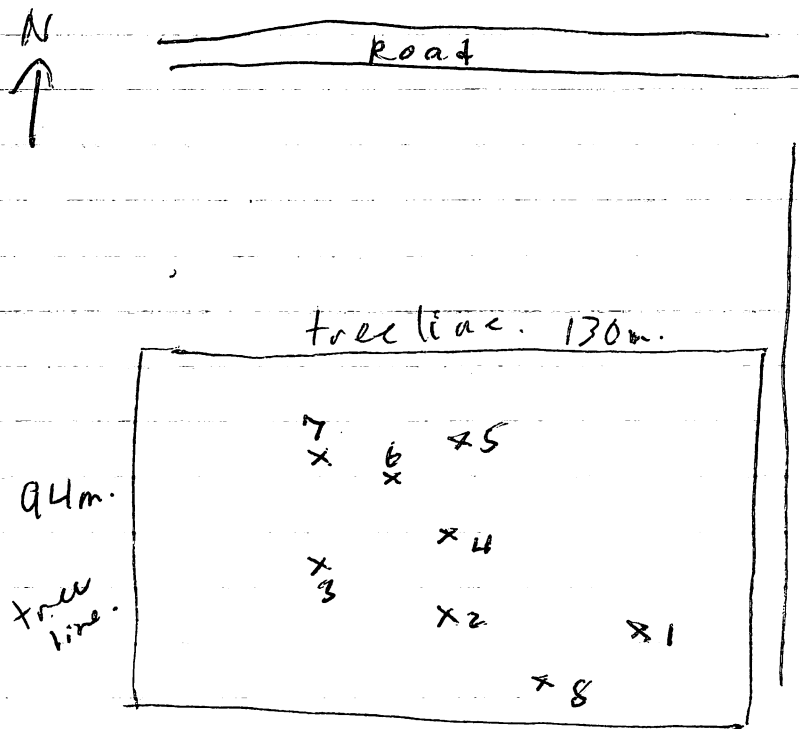 N
Road
tree line. 130m.
7
6
x5
x
x
94m.
x 4
x
3
tree
line.
x2
x 1
x 8